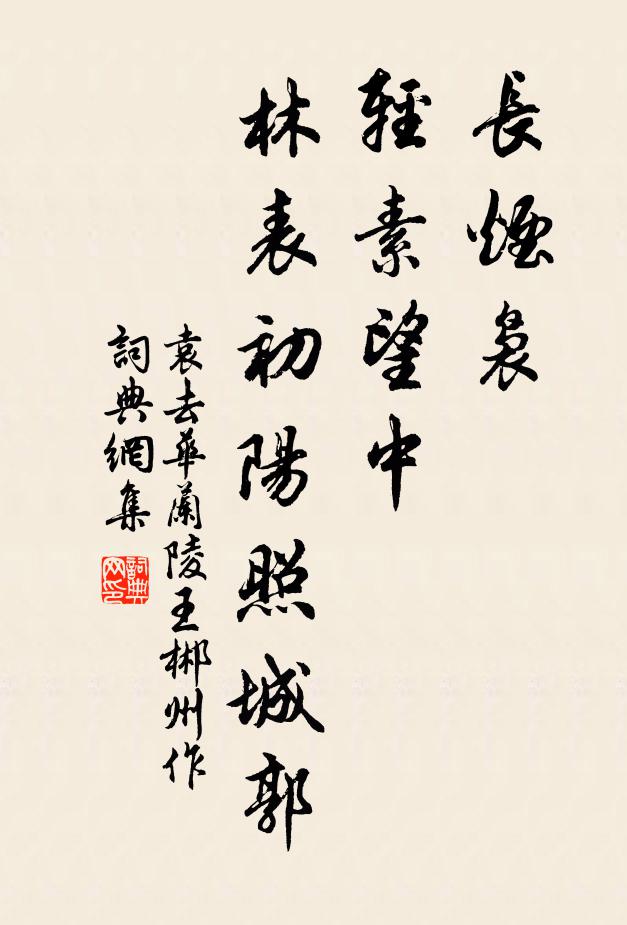 長煙裊
輕素望中
林表初陽照城郭
袁去華蘭陵王郴州作
詞典網集
詞典網印